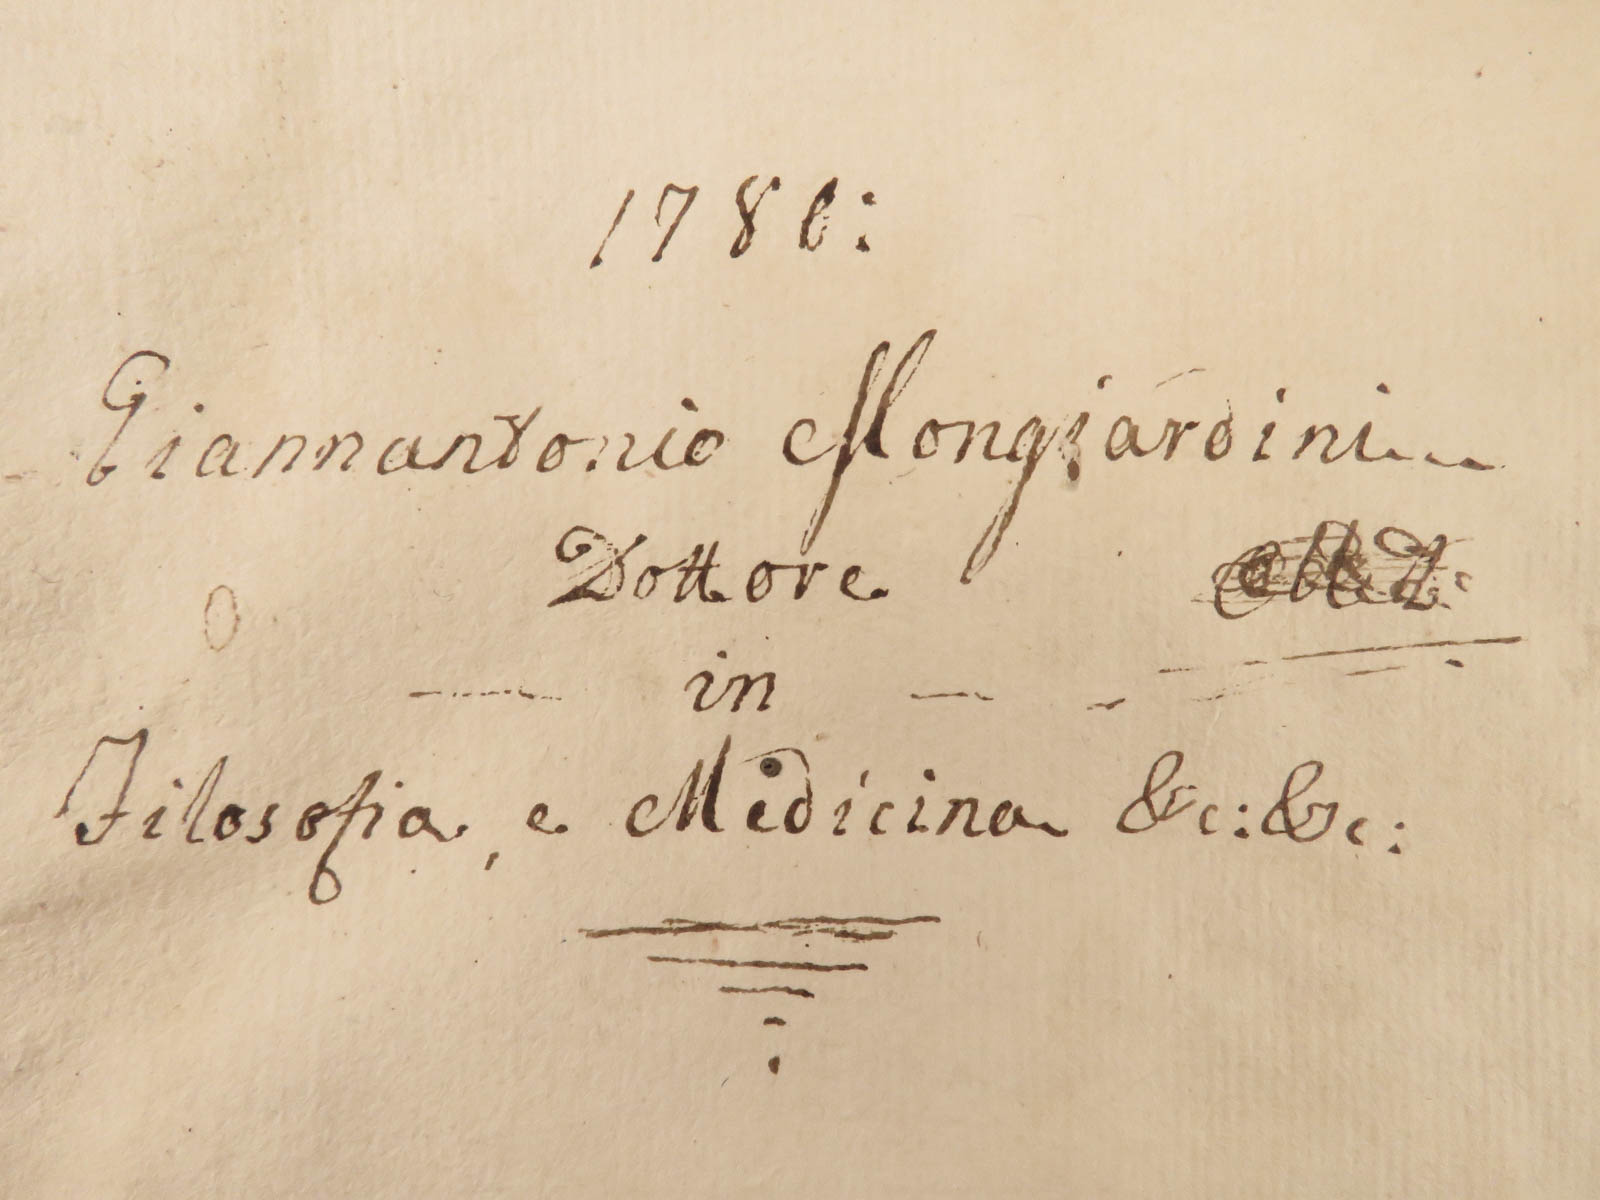 1780:
Giannantonio Mongiardini
Dottore
in
Filosofia, e Medicina &c: &c: